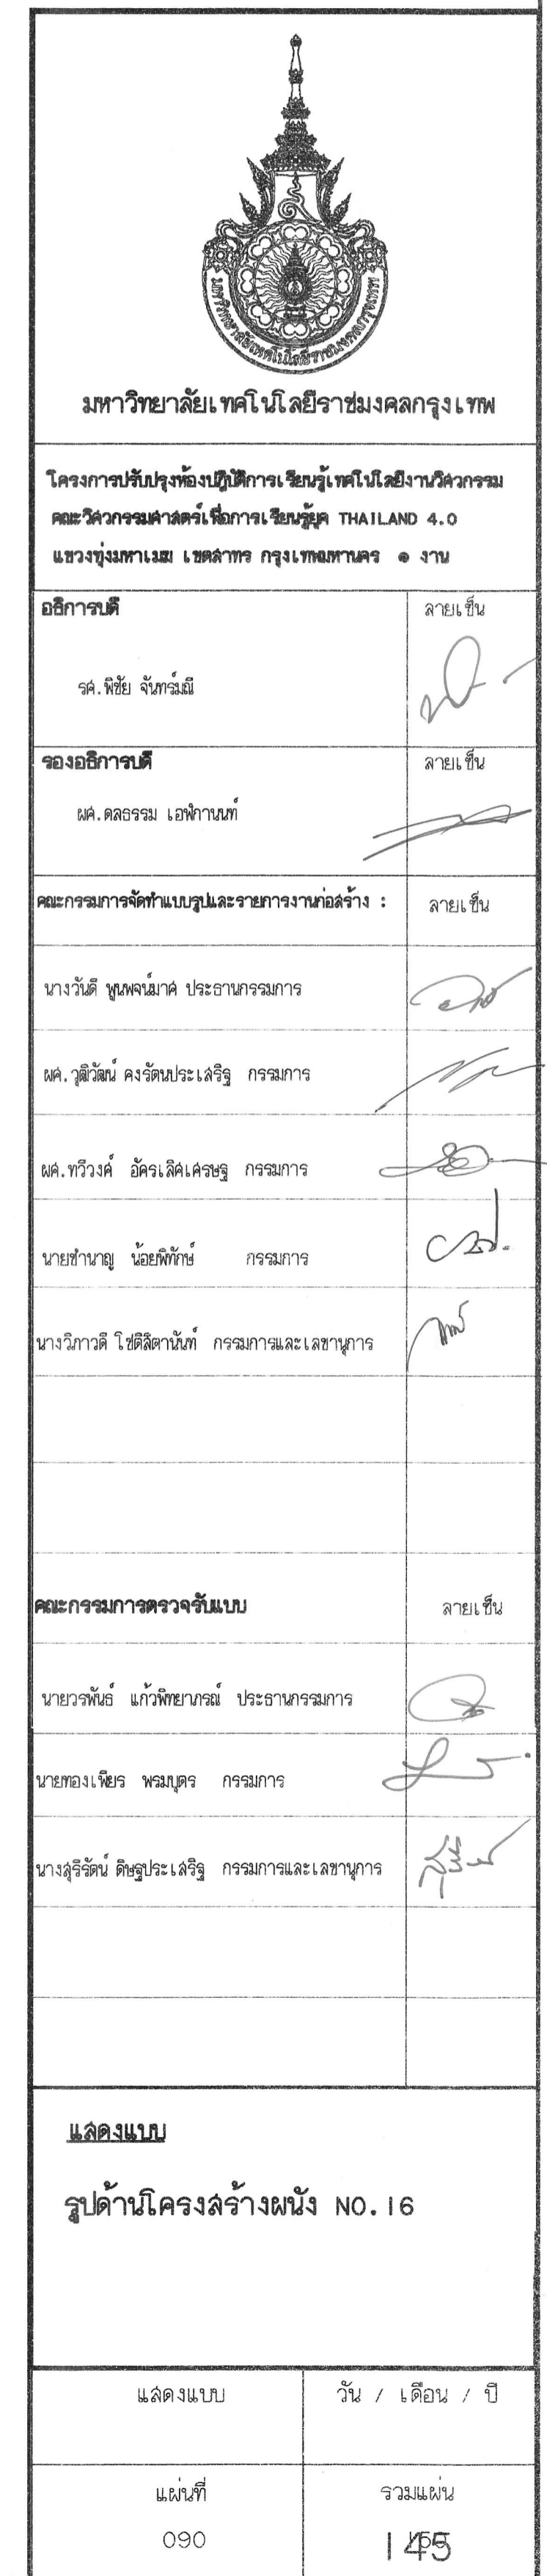 มหาวิทยาลัยเทคโนโลยีราชมงคลกรุงเทพ
มหาวิทยาลัยเทคโนโลยีราชมงคลกรุงเทพ
โครงการปรับปรุงห้องปฏิบัติการเรียนรู้เทคโนโลยีงานวิศวกรรม
คณะวิศวกรรมศาสตร์เพื่อการเรียนรู้ยุค THAILAND 4.0
แขวงทุ่งมหาเมฆ เขตสาทร กรุงเทพมหานคร ๑ งาน
อธิการบดี ลายเซ็น
รศ.พิชัย จันทร์มณี
รองอธิการบดี ลายเซ็น
ผศ.ดลธรรม เอฬกานนท์
คณะกรรมการจัดทำแบบรูปและรายการงานก่อสร้าง : ลายเซ็น
นางวันดี พูนพจน์มาศ ประธานกรรมการ
ผศ.วุฒิวัฒน์ คงรัตนประเสริฐ กรรมการ
ผศ.ทวีวงศ์ อัครเลิศเศรษฐ กรรมการ
นายชำนาญ น้อยพิทักษ์ กรรมการ
นางวิภาวดี โชติสิตานันท์ กรรมการและเลขานุการ
คณะกรรมการตรวจรับแบบ ลายเซ็น
นายวรพันธ์ แก้วพิทยาภรณ์ ประธานกรรมการ
นายทองเพียร พรมบุตร กรรมการ
นางสุรีรัตน์ ดิษฐประเสริฐ กรรมการและเลขานุการ
แสดงแบบ
รูปด้านโครงสร้างผนัง NO.16
แสดงแบบ วัน / เดือน / ปี
แผ่นที่ รวมแผ่น
090 145